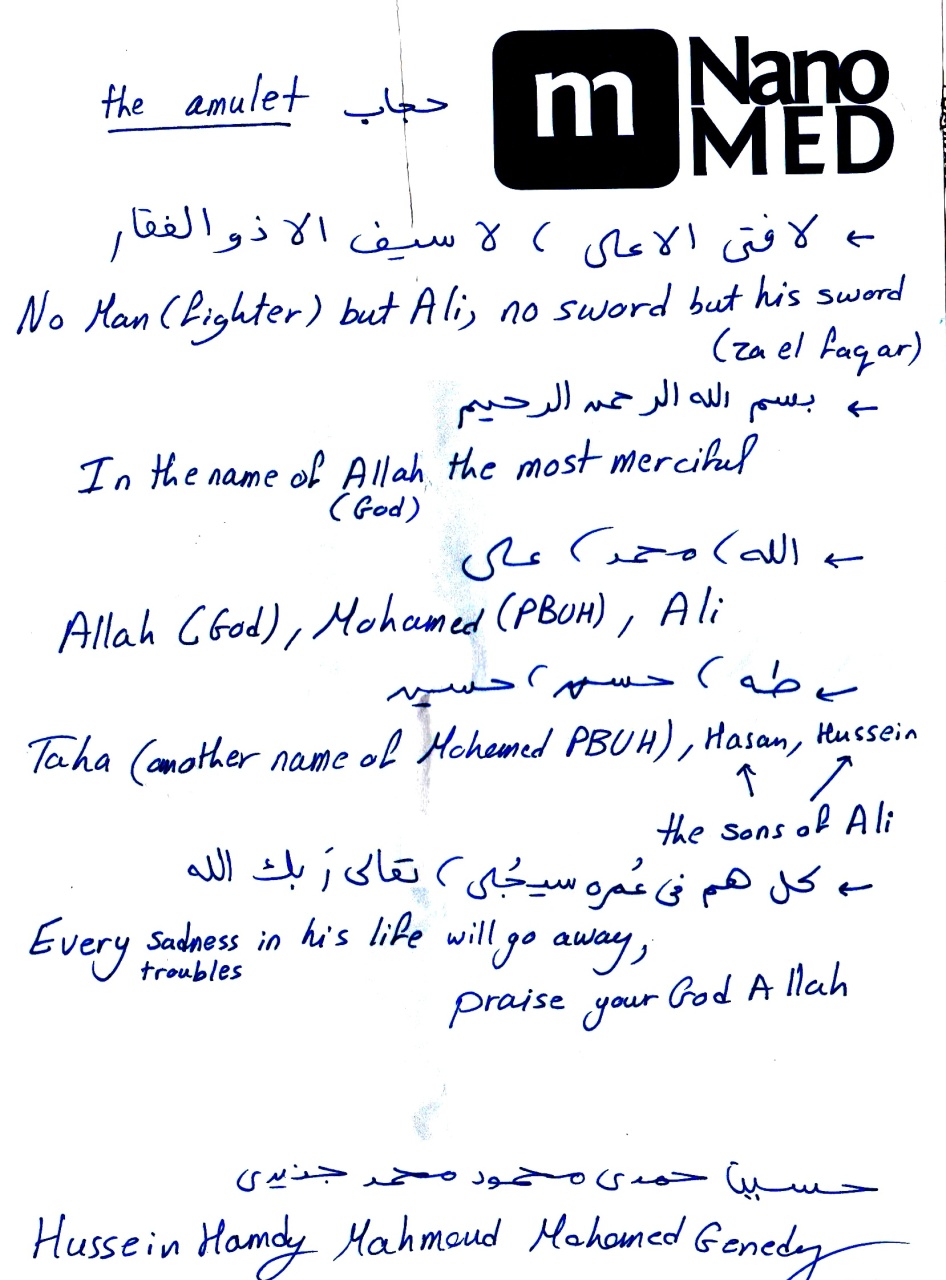 the amulet حجاب
m Nano
MED
← لا فتى الا على ، لا سيف الا ذو الفقار
No Man (fighter) but Ali, no sword but his sword
(za el faqar)
← بسم الله الرحمن الرحيم
In the name of Allah, the most merciful
(God)
← الله، محمد، على
Allah (God), Mohamed (PBUH), Ali
← طه، حسن، حسين
Taha (another name of Mohamed PBUH), Hasan, Hussein
the sons of Ali
← كل هم فى عُمره سيجُلى، تعالى رَبك الله
Every sadness in his life will go away,
troubles
praise your God Allah
حسين حمدى محمود محمد جنيدى
Hussein Hamdy Mahmoud Mohamed Genedy